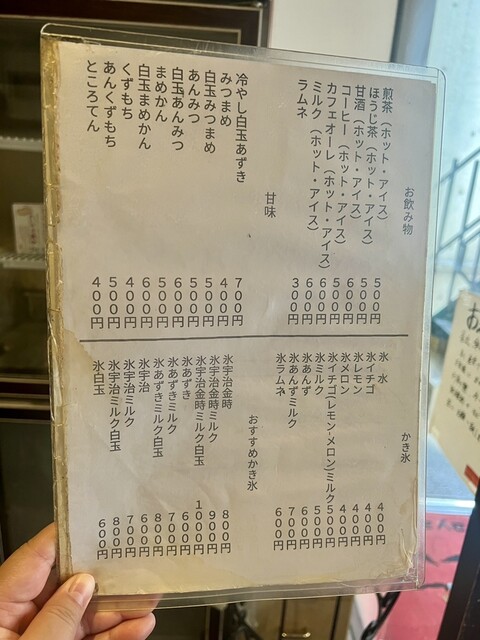 お飲み物
煎茶(ホット・アイス) 500円
ほうじ茶(ホット・アイス) 500円
甘酒(ホット・アイス) 600円
コーヒー(ホット・アイス) 500円
カフェオーレ(ホット・アイス) 600円
ミルク(ホット・アイス) 600円
ラムネ 300円
甘味
冷やし白玉あずき 700円
みつまめ 400円
白玉みつまめ 500円
あんみつ 500円
白玉あんみつ 600円
まめかん 500円
白玉まめかん 600円
くずもち 400円
あんくずもち 500円
ところてん 400円
かき氷
氷 水 400円
氷イチゴ 400円
氷レモン 400円
氷メロン 400円
氷イチゴ(レモン・メロン)ミルク 500円
氷ミルク 500円
氷あんず 600円
氷あんずミルク 700円
氷ラムネ 600円
おすすめかき氷
氷宇治金時 800円
氷宇治金時ミルク 900円
氷宇治金時ミルク白玉 1000円
氷あずき 600円
氷あずきミルク 700円
氷あずきミルク白玉 800円
氷宇治 600円
氷宇治ミルク 700円
氷宇治ミルク白玉 800円
氷白玉 600円